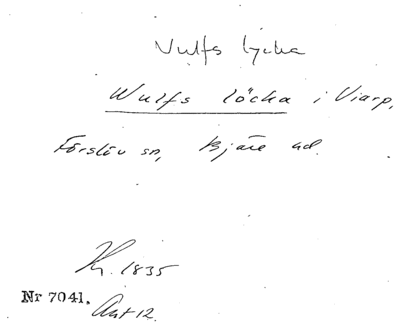 Vulfs lycka
Wulfs löcka i Viarp,
Förslöv sn, Bjäre hd.
Kr. 1835
Nr 7041. Akt 12.